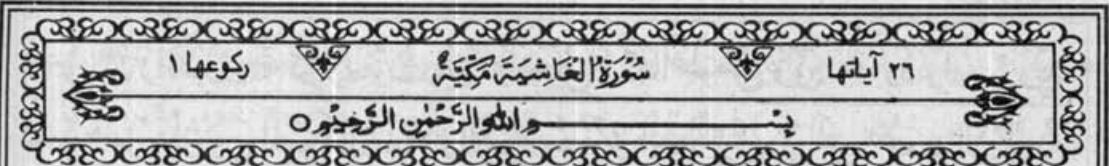 ٢٦ آیاتها سُوْرَةُ الْغَاشِيَةِ مَكِّيَّةٌ ركوعها ١
بِسْمِ اللهِ الرَّحْمٰنِ الرَّحِيْمِ ○